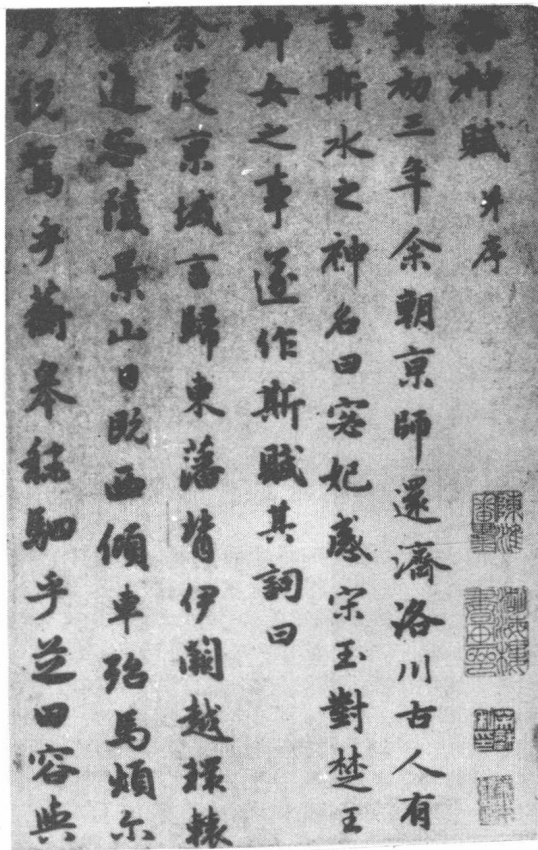 洛神賦 并序
黃初三年余朝京師還濟洛川古人有
言斯水之神名曰宓妃感宋玉對楚王
神女之事遂作斯賦其詞曰
余從京域言歸東藩背伊闕越轘轅
經通谷陵景山日既西傾車殆馬煩尔
乃稅駕乎蘅皋秣駟乎芝田容與